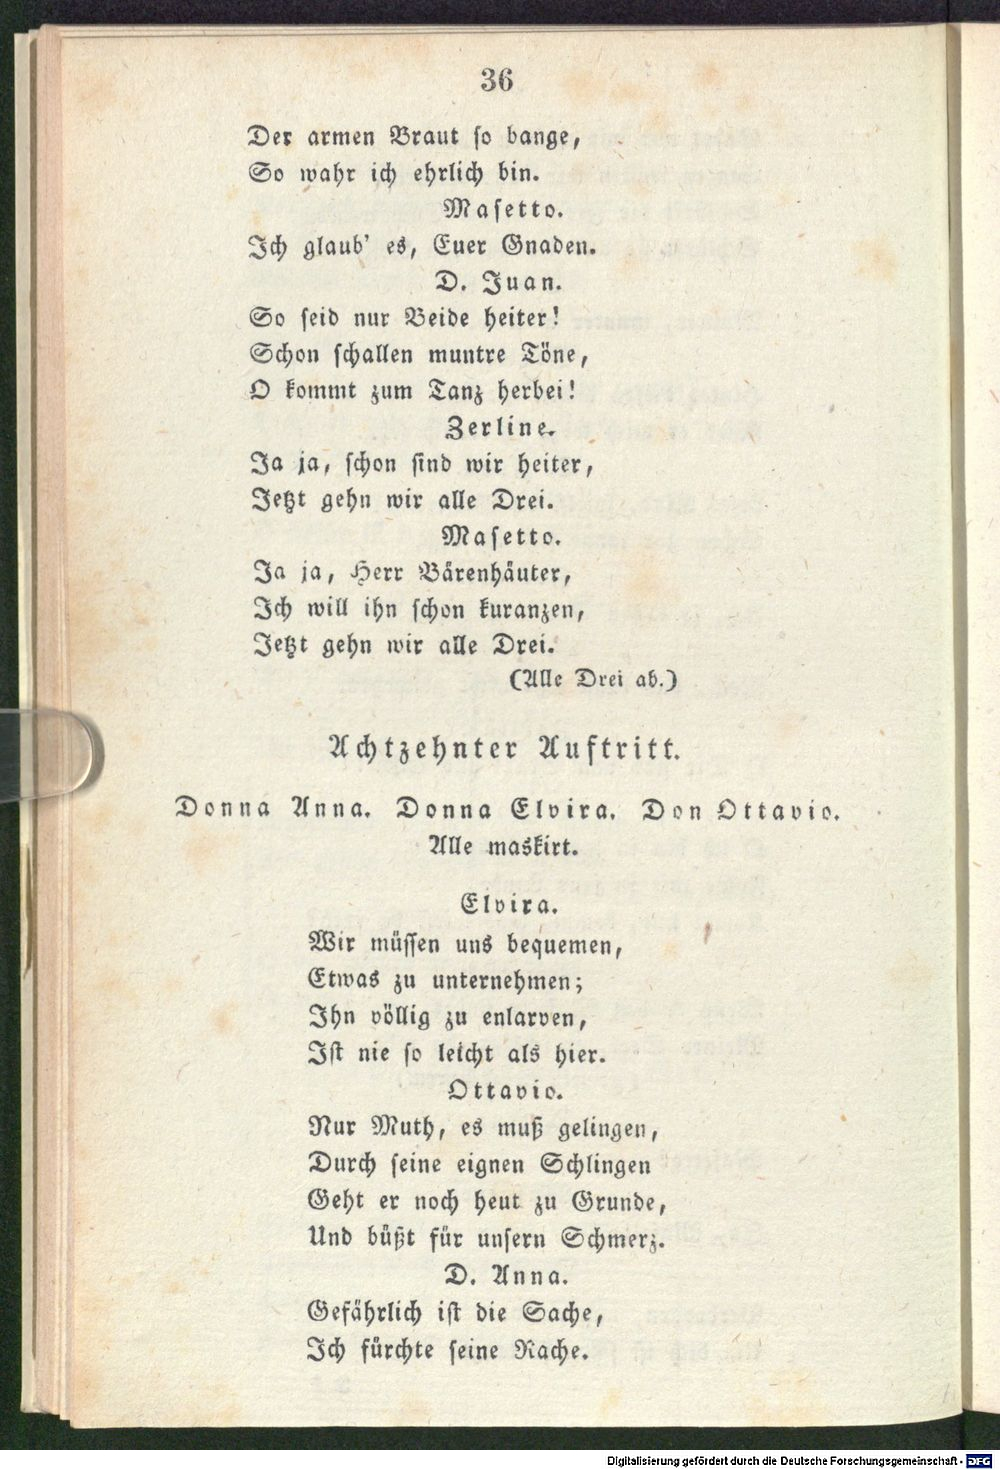 36
Der armen Braut so bange,
So wahr ich ehrlich bin.
Masetto.
Ich glaub' es, Euer Gnaden.
D. Juan.
So seid nur Beide heiter!
Schon schallen muntre Töne,
O kommt zum Tanz herbei!
Zerline.
Ja ja, schon sind wir heiter,
Jetzt gehn wir alle Drei.
Masetto.
Ja ja, Herr Bärenhäuter,
Ich will ihn schon kuranzen,
Jetzt gehn wir alle Drei.
(Alle Drei ab.)
Achtzehnter Auftritt.
Donna Anna. Donna Elvira. Don Ottavio.
Alle maskirt.
Elvira.
Wir müssen uns bequemen,
Etwas zu unternehmen;
Ihn völlig zu enlarven,
Ist nie so leicht als hier.
Ottavio.
Nur Muth, es muß gelingen,
Durch seine eignen Schlingen
Geht er noch heut zu Grunde,
Und büßt für unsern Schmerz.
D. Anna.
Gefährlich ist die Sache,
Ich fürchte seine Rache.
Digitalisierung gefördert durch die Deutsche Forschungsgemeinschaft - DFG